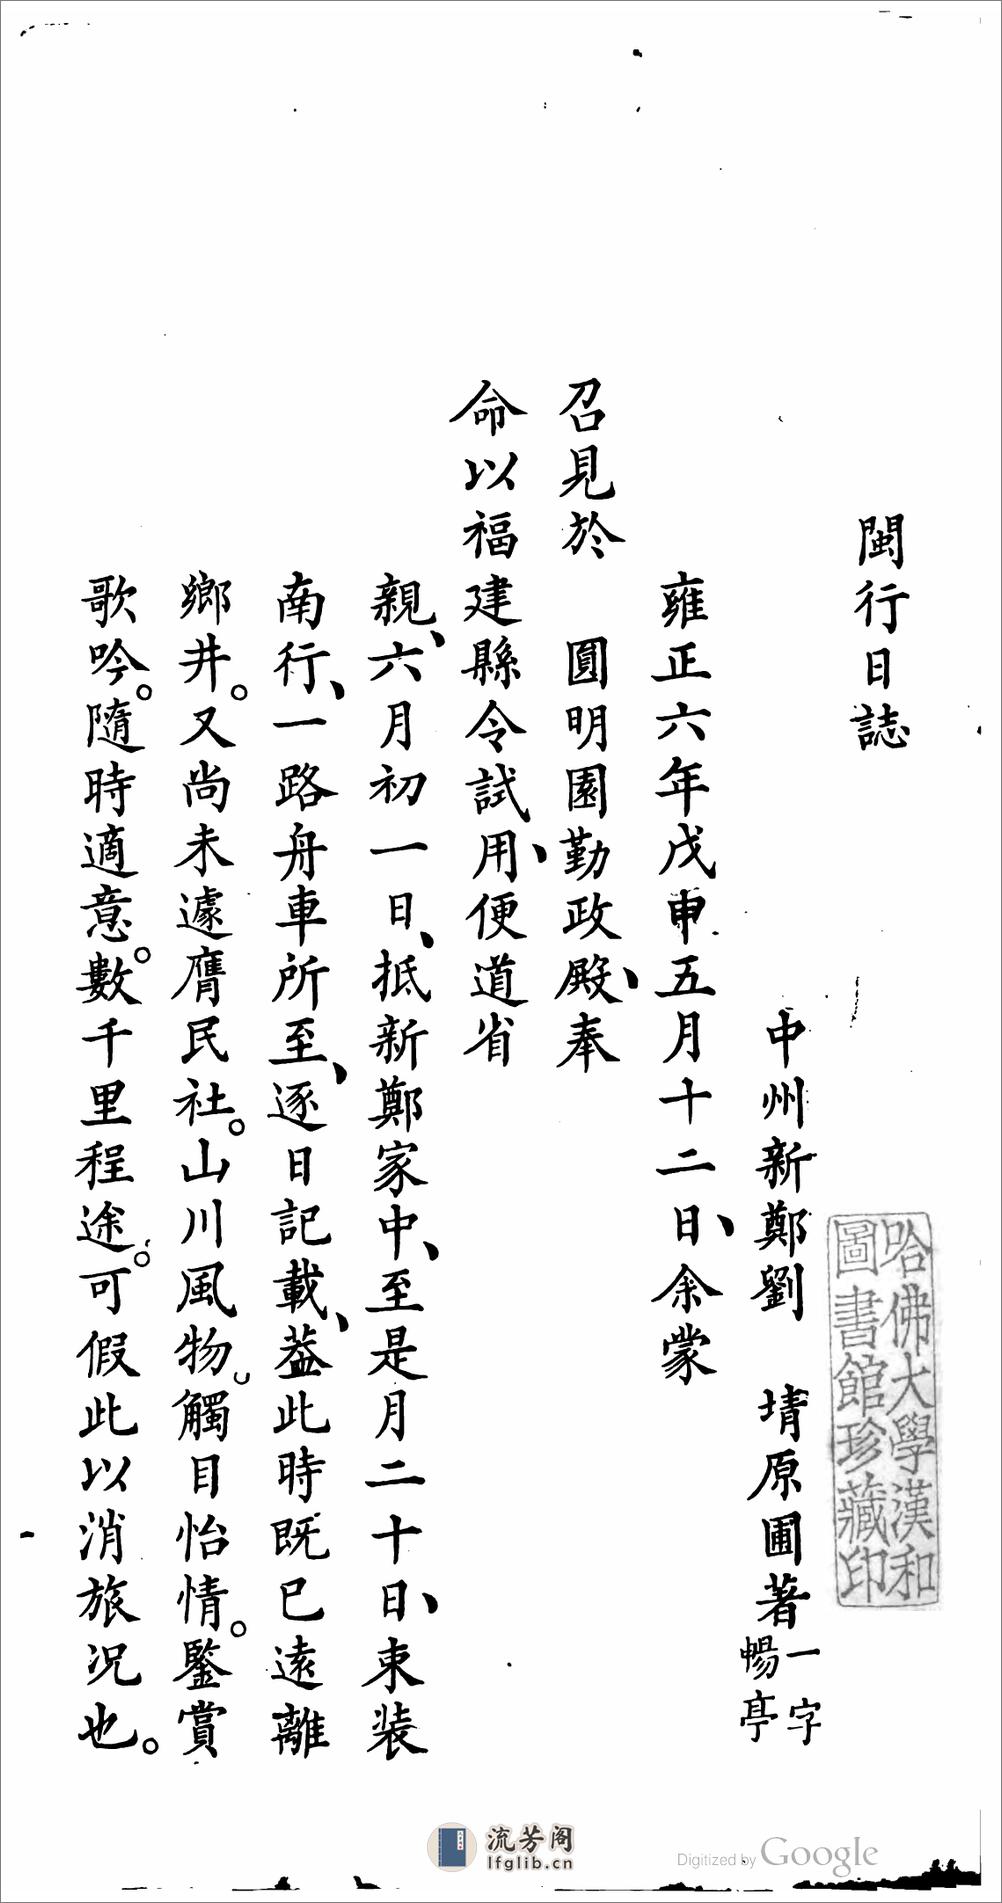 閩行日誌
中州新鄭劉 堉原圃著一字暢亭
雍正六年戊申五月十二日、余蒙
召見於 圓明園勤政殿、奉
命以福建縣令試用、便道省
親、六月初一日、抵新鄭家中、至是月二十日、束裝
南行、一路舟車所至、逐日記載、葢此時既已遠離
鄉井。又尚未遽膺民社。山川風物。觸目怡情。鑒賞
歌吟。隨時適意。數千里程途。可假此以消旅况也。
哈佛大學漢和
圖書館珍藏印
流芳阁
lfglib.cn
Digitized by Google